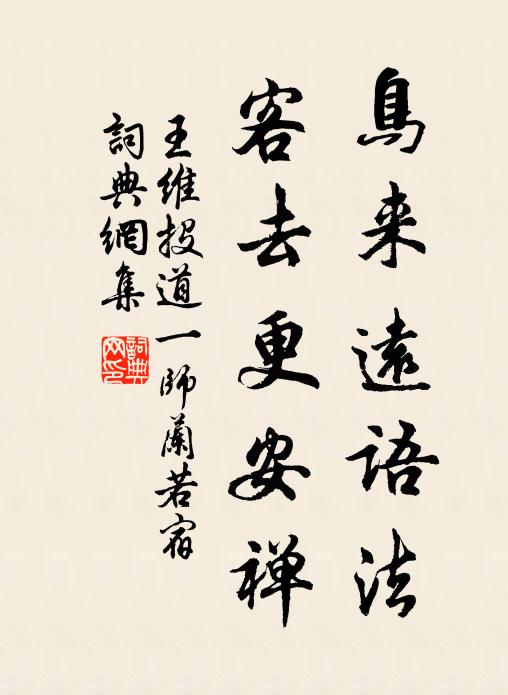 鳥来遠語法
客去更安禅
王維投道一師蘭若宿
詞典網集
詞典網印